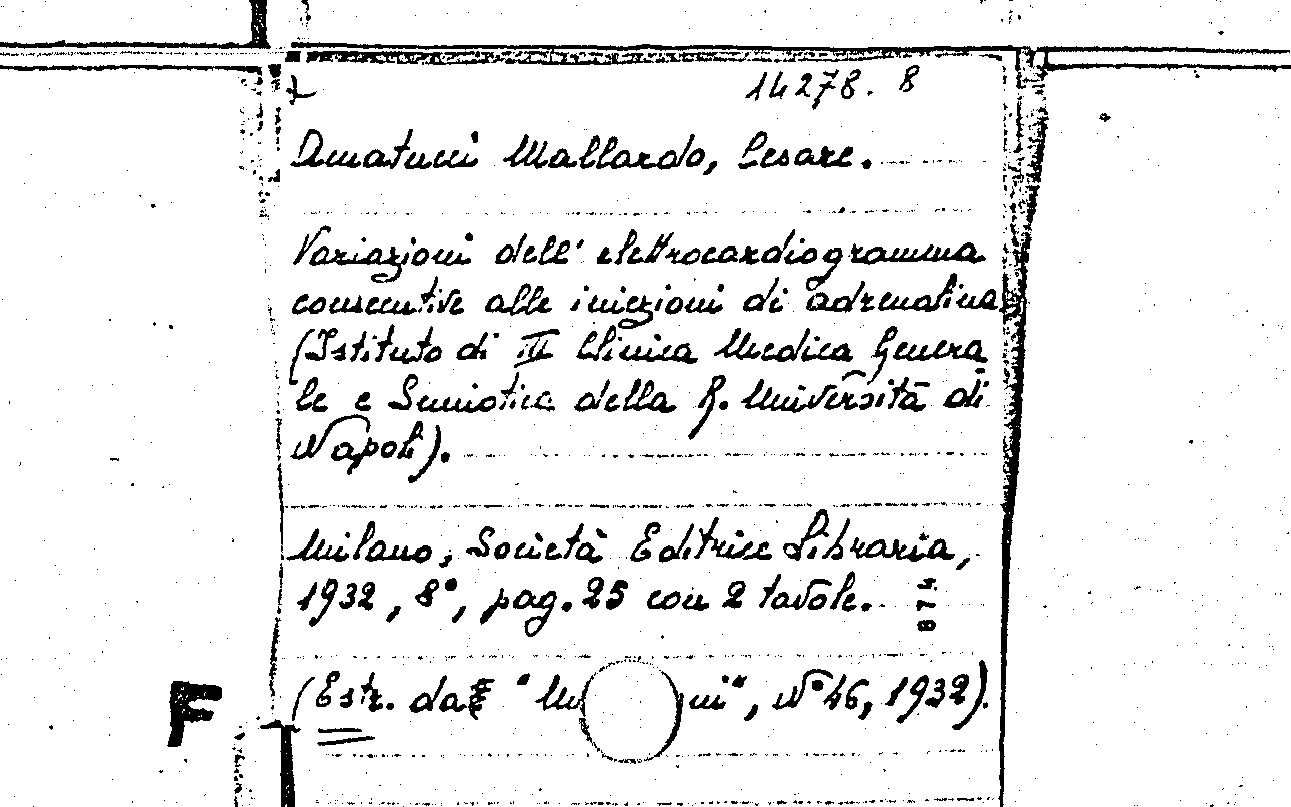 14278. 8
Amatucci Mallardo, Cesare.
Variazioni dell' elettrocardiogramma
consecutive alle iniezioni di adrenalina
(Istituto di III Clinica Medica Genera
le e Semiotica della R. Università di
Napoli).
Milano, Società Editrice Libraria,
1932, 8°, pag. 25 con 2 tavole.
(Estr. da "
", N° 46, 1932).
F